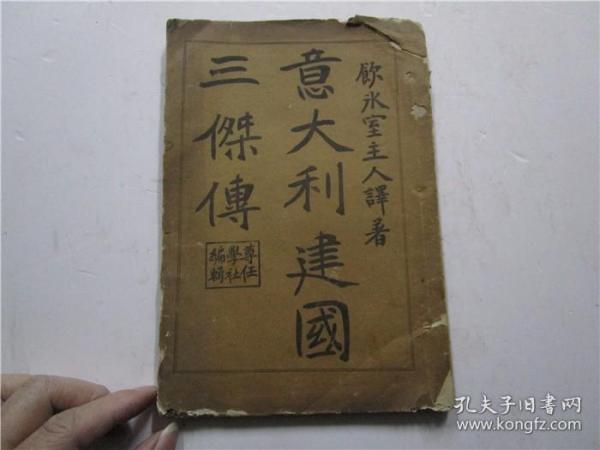 飲氷室主人譯著
意大利建國
三傑傳
尊任
學社
編輯
孔夫子旧书网
www.kongfz.com